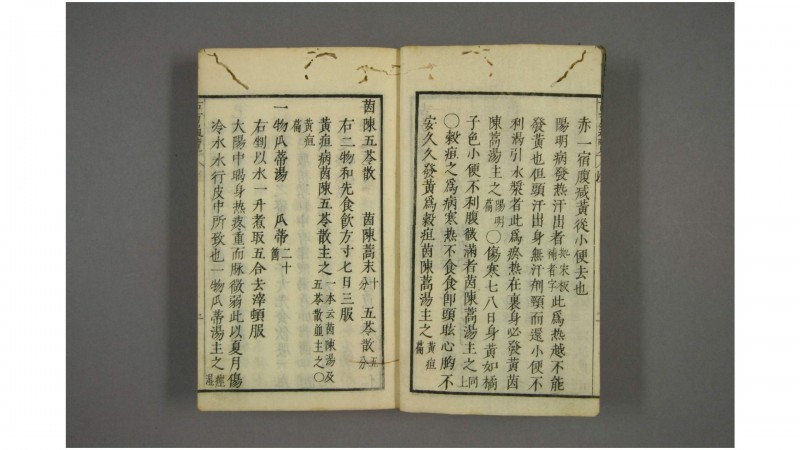 赤一宿腹減黃從小便去也
陽明病發熱汗出者 此爲熱越不能
發黃也但頭汗出身無汗劑頸而還小便不
利渴引水漿者此爲瘀熱在裏身必發黃茵
陳蒿湯主之 陽明篇 〇傷寒七八日身黃如橘
子色小便不利腹微滿者茵陳蒿湯主之 同上
〇穀疸之爲病寒熱不食食卽頭眩心胸不
安久久發黃爲穀疸茵陳蒿湯主之 黃疸篇
茵陳五苓散 茵陳蒿末 十分 五苓散 五分
右二物和先食飮方寸七日三服
黃疸病茵陳五苓散主之 一本云茵陳湯及五苓散竝主之 〇
黃疸篇
一物瓜蒂湯 瓜蒂 二十箇
右剉以水一升煮取五合去滓頓服
太陽中暍身熱疼重而脈微弱此以夏月傷
冷水水行皮中所致也一物瓜蒂湯主之